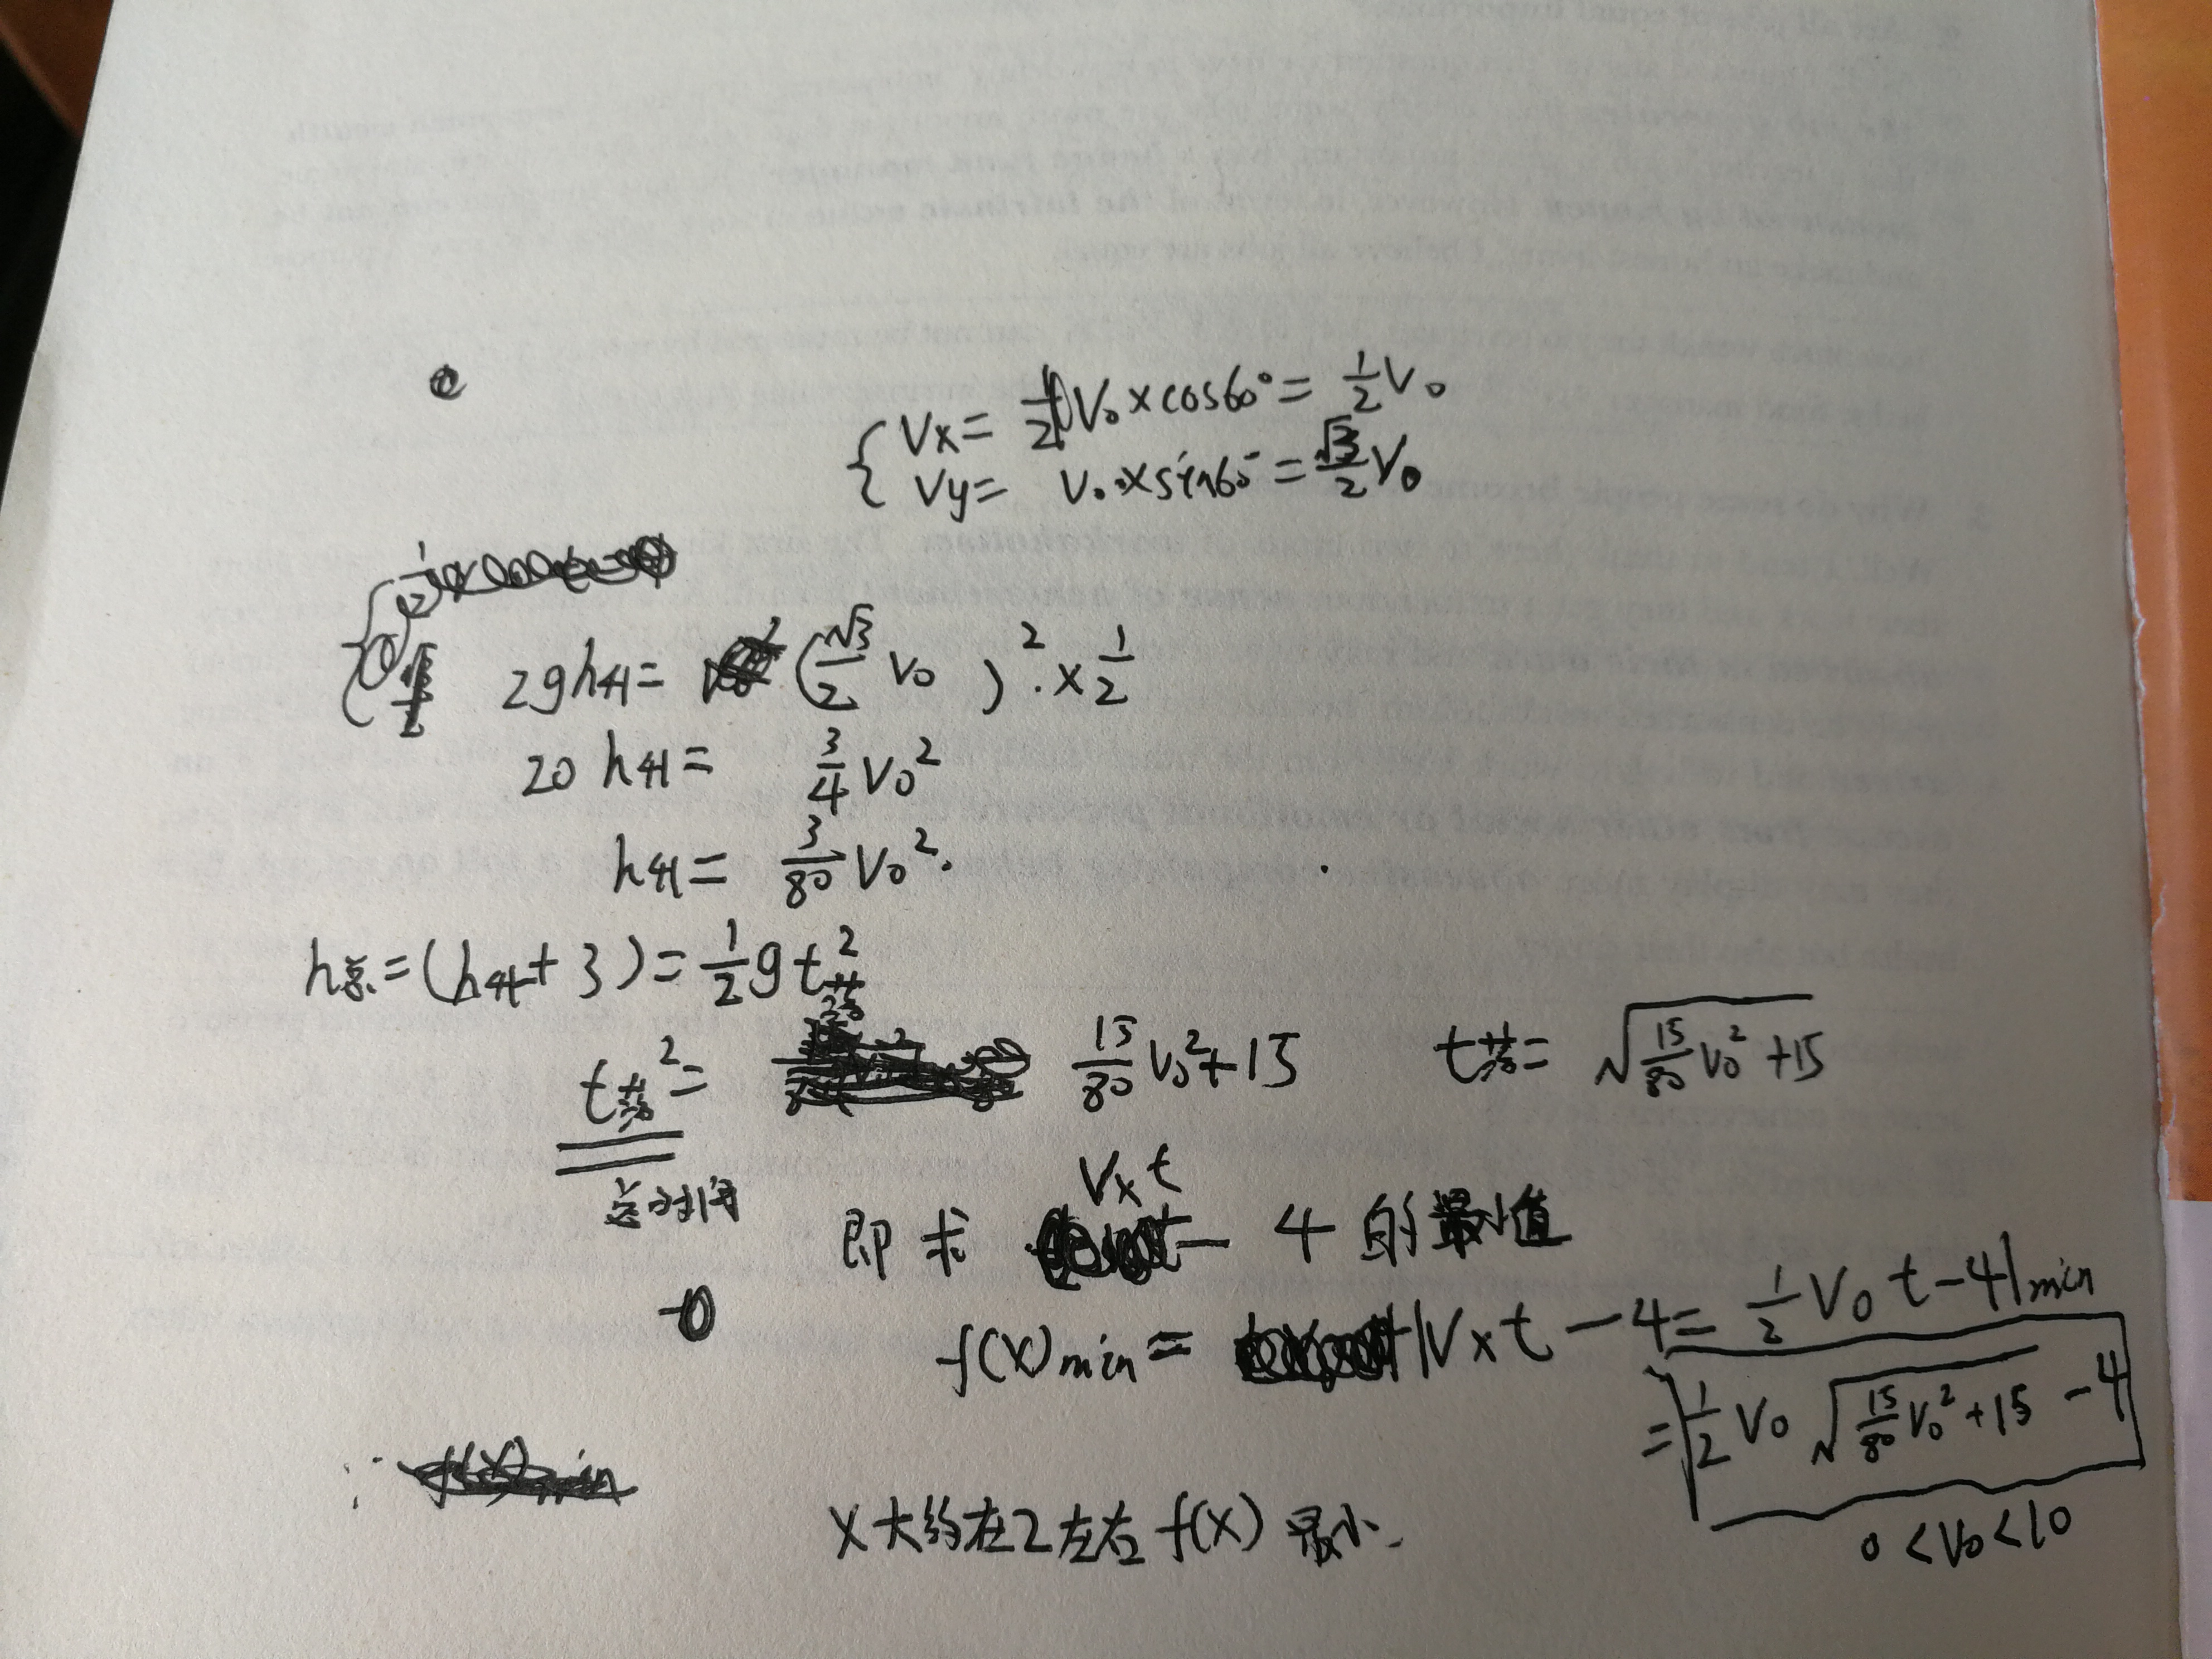 Vx = 1/2 V₀ × cos60° = 1/2 V₀
Vy = V₀ · × sin60° = √3/2 V₀
2gh升 = (√3/2 V₀)² · × 1/2
20 h升 = 3/4 V₀²
h升 = 3/80 V₀² .
h总 = (h升 + 3) = 1/2 g t²
t² = 15/80 V₀² + 15 t = √(15/80 V₀² + 15)
总时间
Vx t
即求 - 4 的最小值
f(x)min = |Vx t - 4 = 1/2 V₀ t - 4|min
= |1/2 V₀ √(15/80 V₀² + 15) - 4
0 < V₀ < 10
X大约在2左右 f(x) 最小.